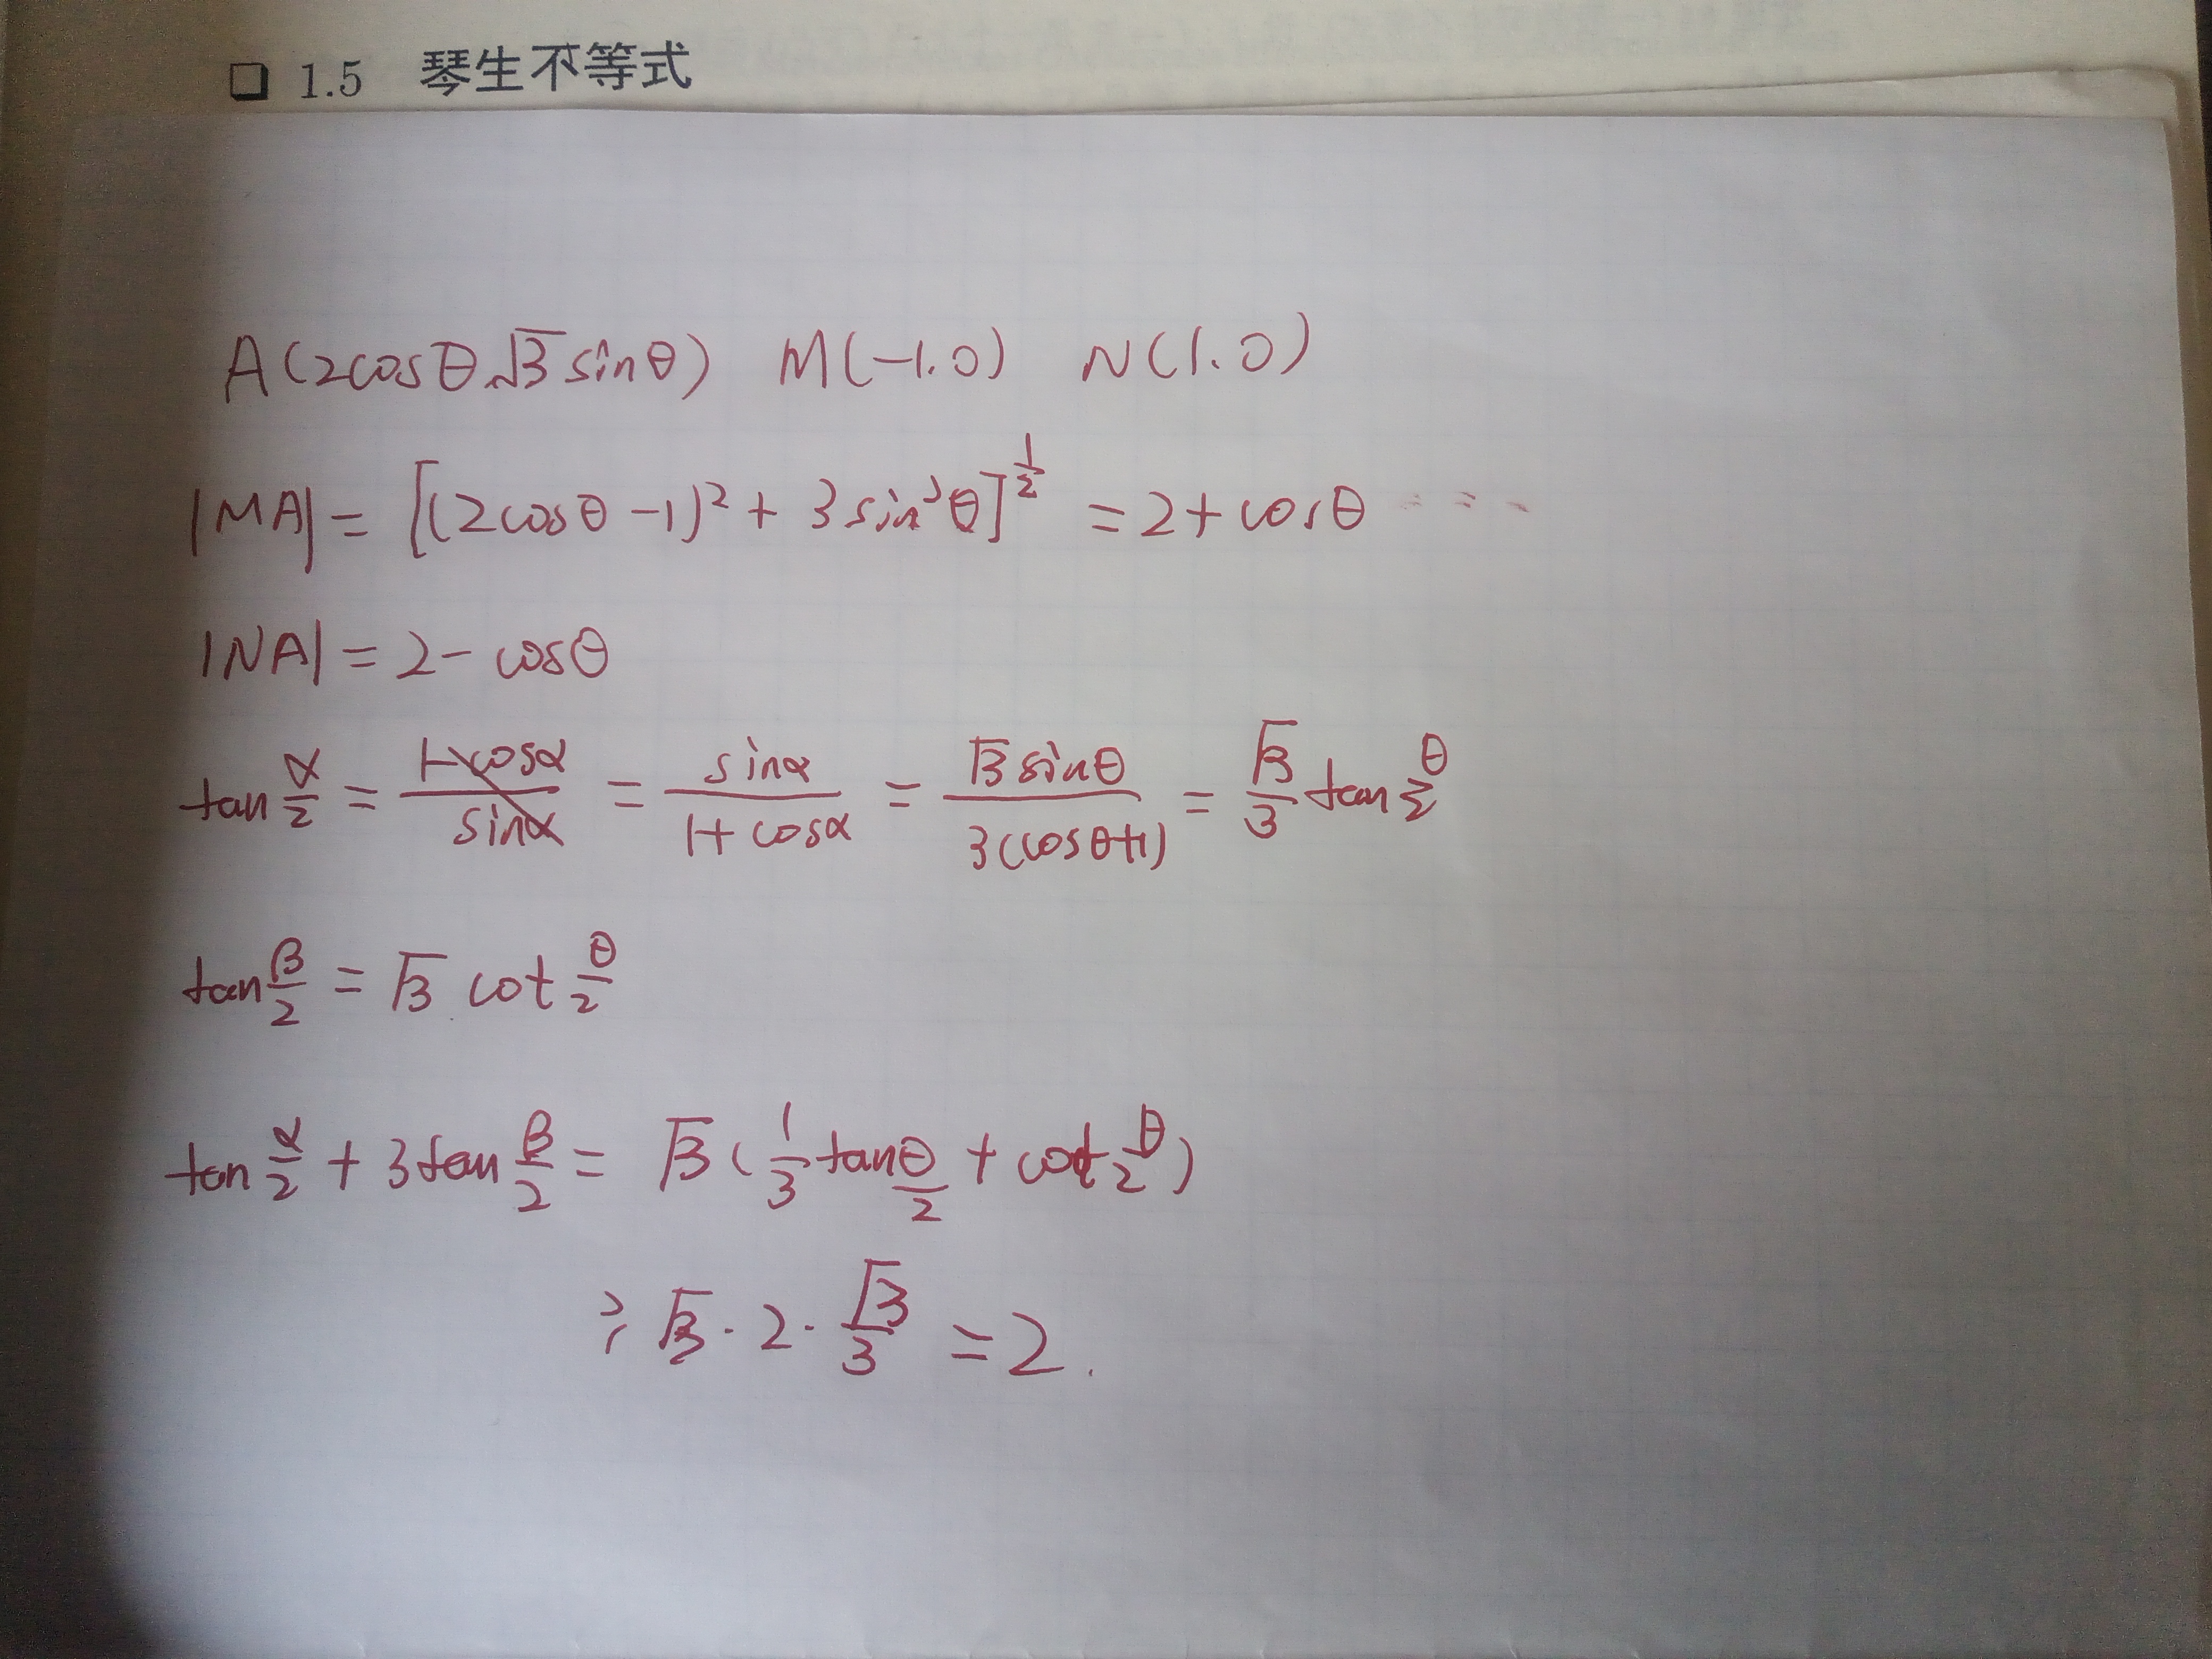 □ 1.5 琴生不等式
A(2cosθ.√3 sinθ) M(-1.0) N(1.0)
|MA| = [(2cosθ -1)² + 3sin²θ]^{1/2} = 2+cosθ
|NA| = 2- cosθ
tan α/2 = (1-cosα)/(sinα) = (sinα)/(1+cosα) = (√3 sinθ)/(3(cosθ+1)) = √3/3 tan θ/2
tan β/2 = √3 cot θ/2
tan α/2 + 3tan β/2 = √3 (1/3 tan θ/2 + cot θ/2)
≥ √3 · 2 · √3/3 = 2.